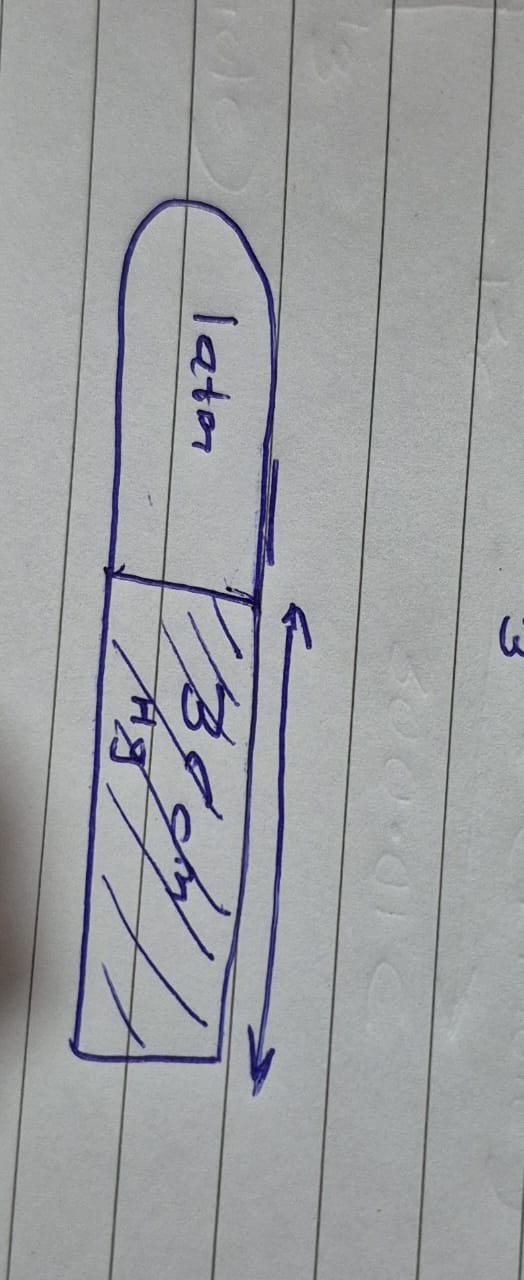 1 atm
30 cm
Hg
3